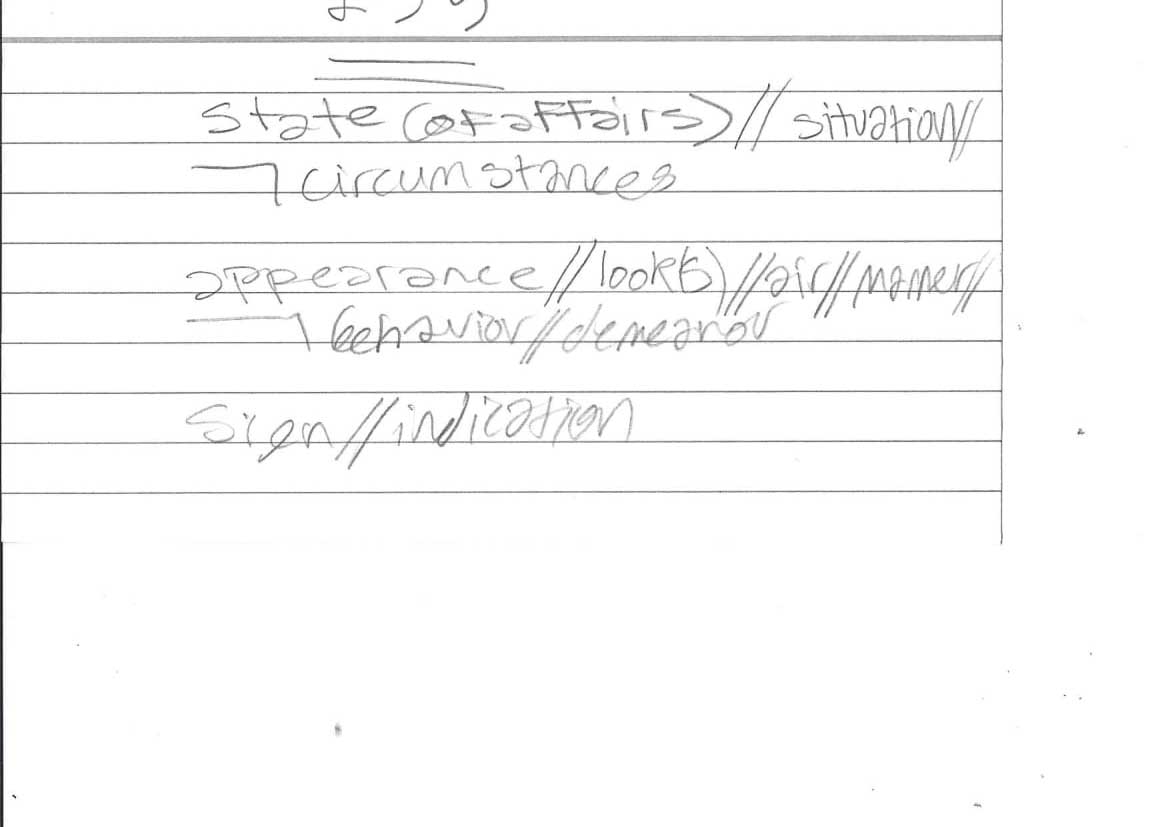 ようす
state (of affairs)//situation//
circumstances
appearance//look(s)//air//manner//
behavior//demeanor
sign//indication